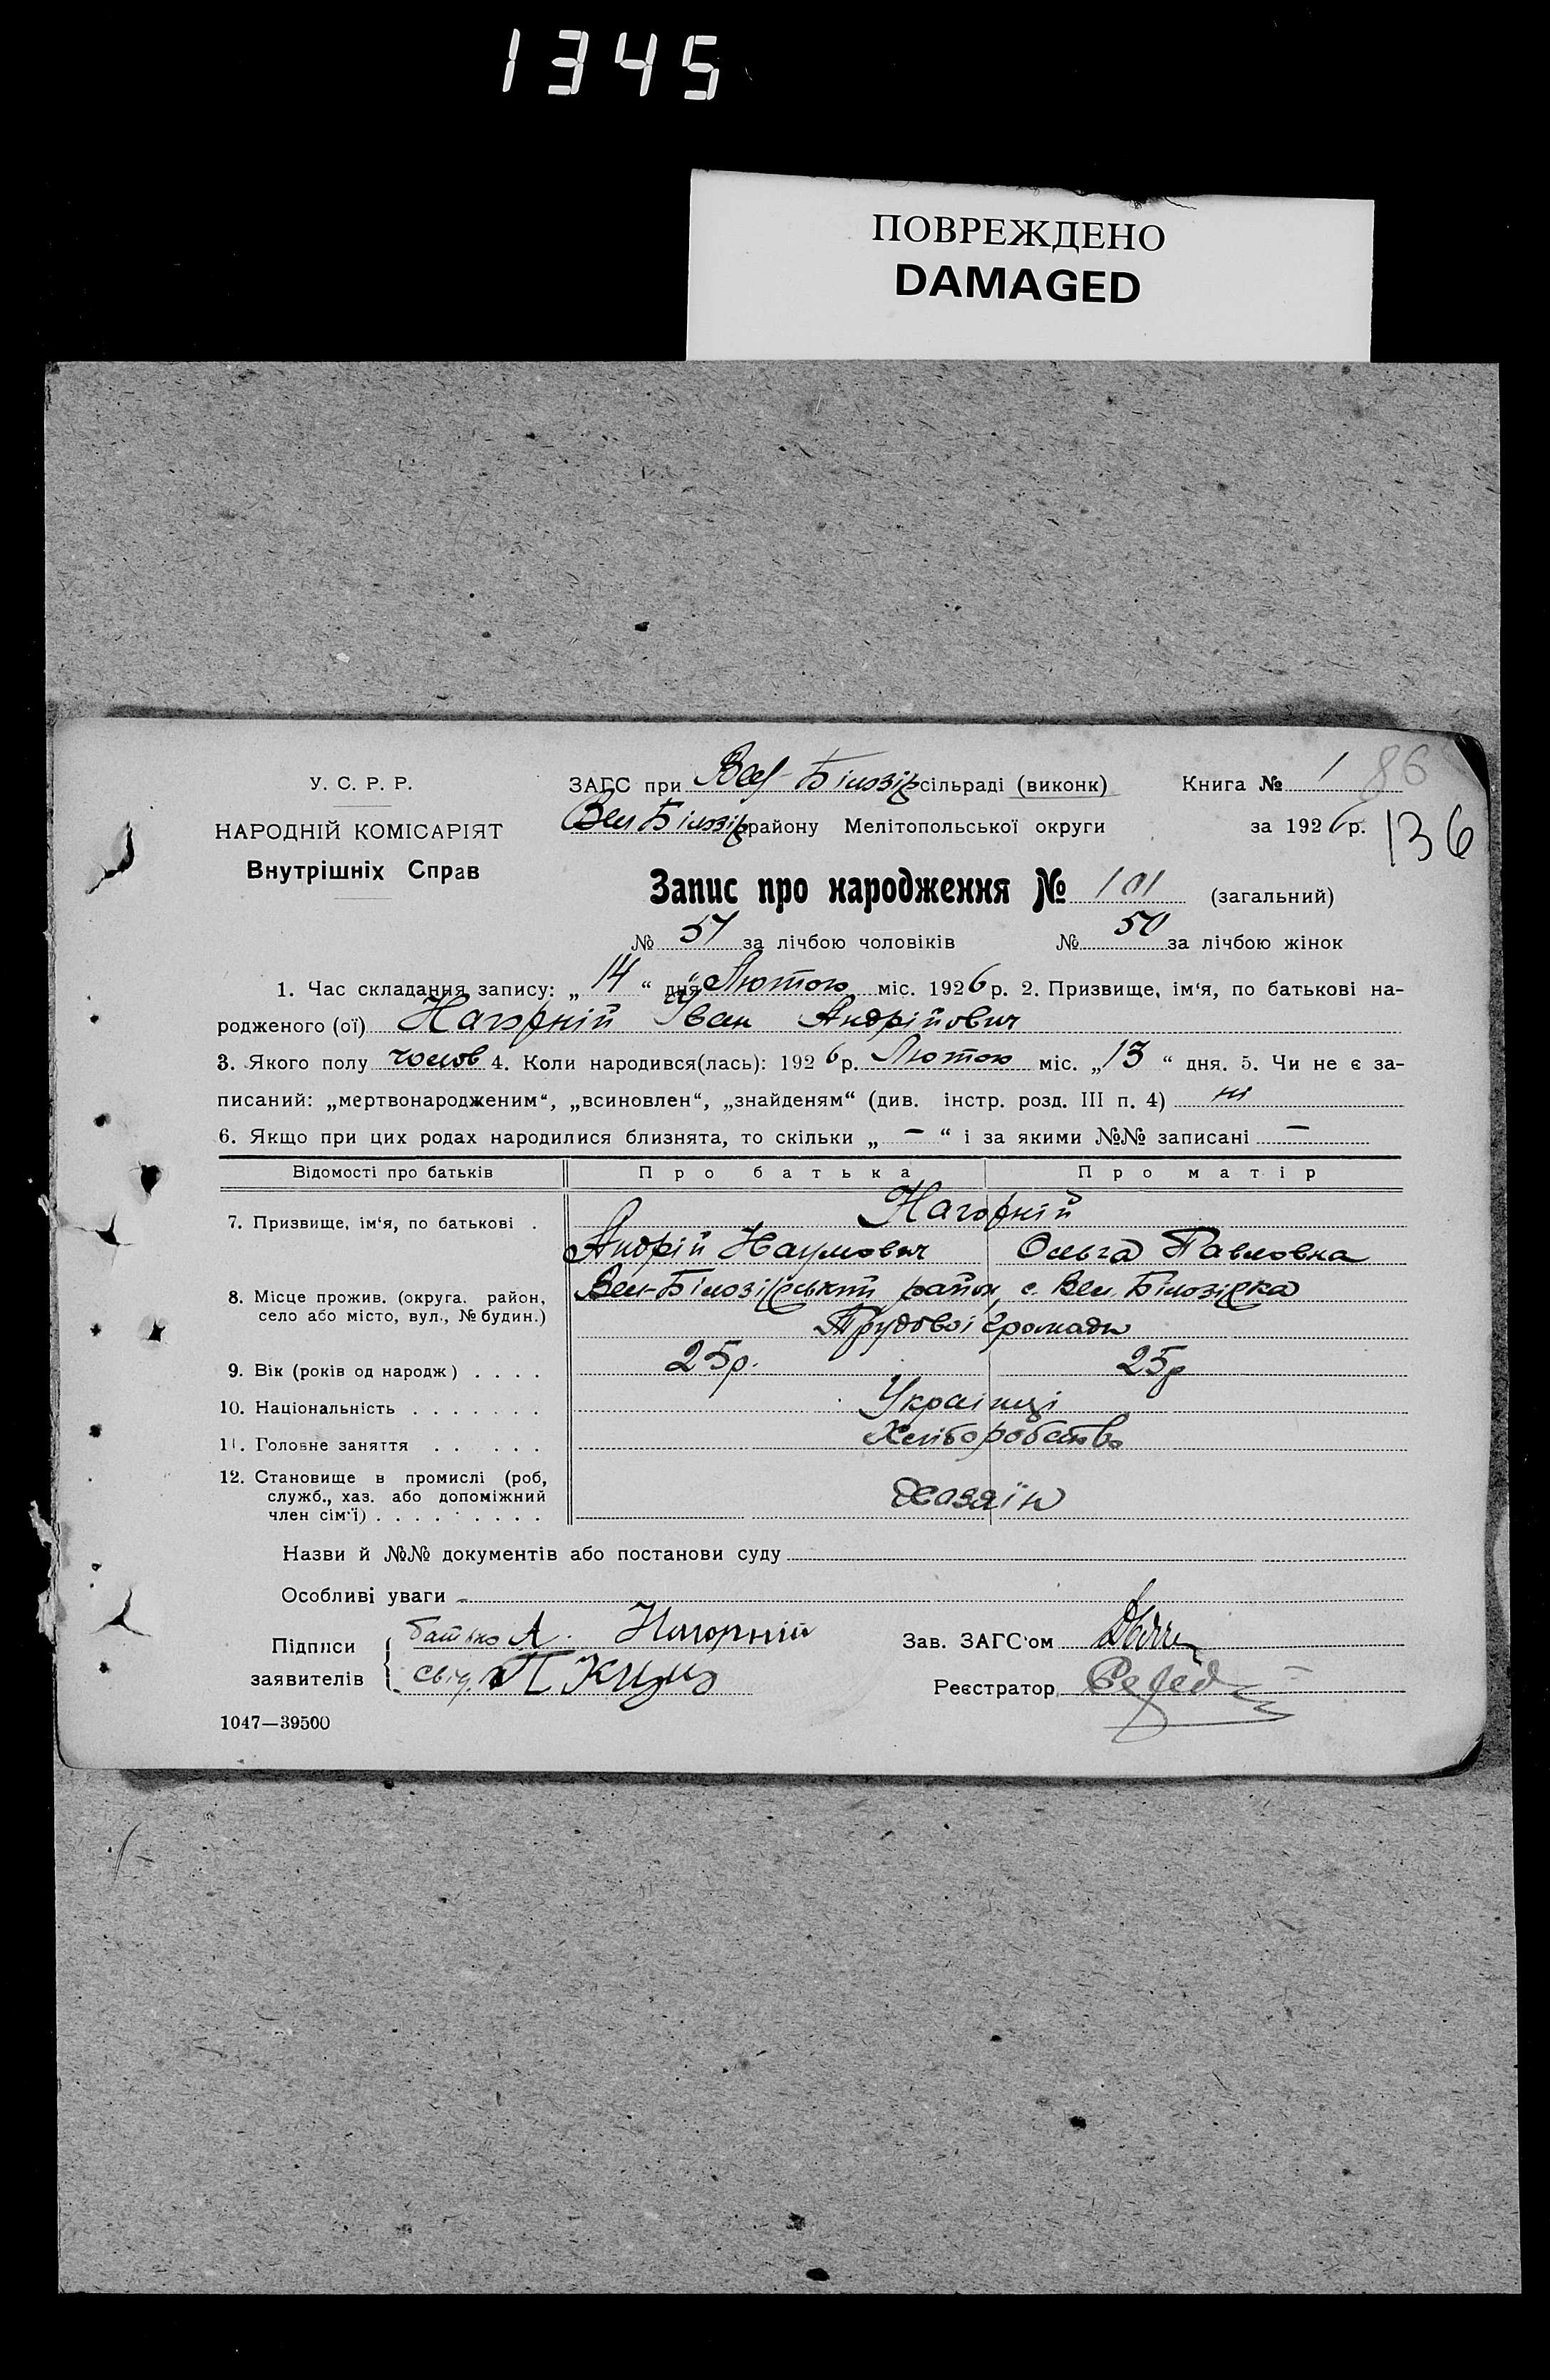 1345
ПОВРЕЖДЕНО
DAMAGED
У. С. Р. Р.
НАРОДНІЙ КОМІСАРІЯТ
Внутрішніх Справ
ЗАГС при Вел-Білозір сільраді (виконк)
Вел Білозір району Мелітопольської округи
Книга № 1 86
за 1926 р. 136
Запис про народження № 101 (загальний)
№ 51 за лічбою чоловіків № 50 за лічбою жінок
1. Час складання запису: „ 14 “ дня „Лютого міс. 1926 р. 2. Призвище, ім‘я, по батькові на-
родженого (ої) Нагорній Іван Андрійович
3. Якого полу чолов 4. Коли народився(лась): 1926 р. Лютого міс. „13 “ дня. 5. Чи не є за-
писаний: „мертвонародженим“, „всиновлен“, „знайденям“ (див. інстр. розд. III п. 4) ні
6. Якщо при цих родах народилися близнята, то скільки „ – “ і за якими №№ записані –
Відомості про батьків Про батька Про матір
7. Призвище, ім‘я, по батькові . Нагорній
Андрій Наумович Ольга Павловна
8. Місце прожив. (округа. район, село або місто, вул., № будин.) Вел-Білозірський район, с. Вел. Білозірка
Трудової громади
9. Вік (років од народж) . . . . 25р. 25р
10. Національність . . . . . . . Українці
11. Головне заняття . . . . . Хліборобство
12. Становище в промислі (роб,
служб., хаз. або допоміжний
член сім‘ї) . . . . . . . . . Хазяїн
Назви й №№ документів або постанови суду
Особливі уваги
Підписи
заявителів
батько А. Нагорній
свід. П
Зав. ЗАГС‘ом
Реєстратор
1047—39500